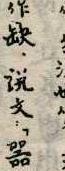 作缺、说文「器